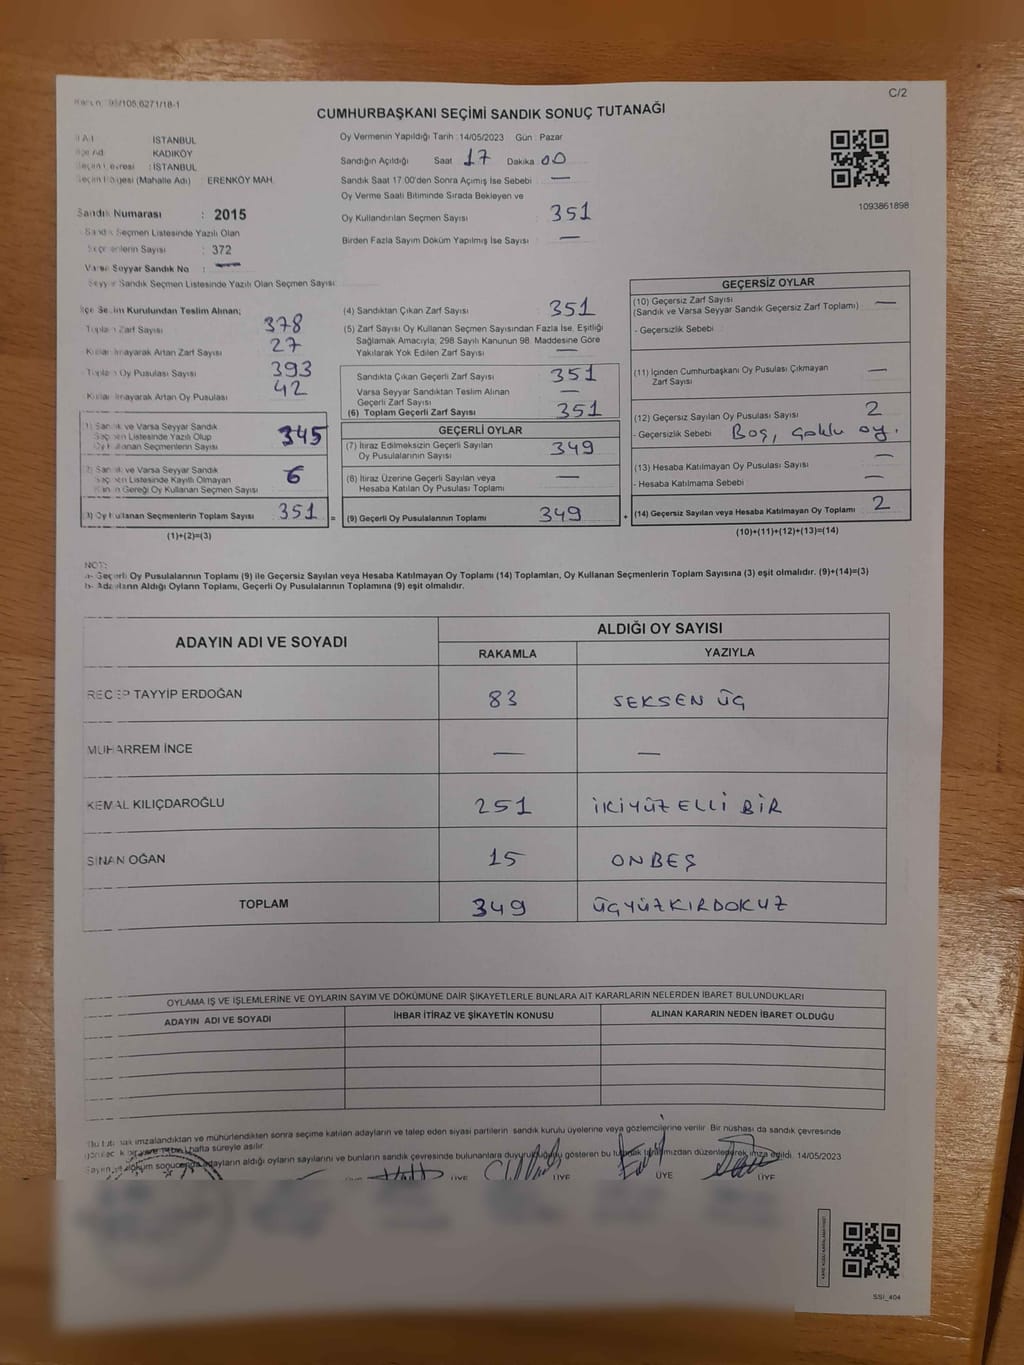 C/2
CUMHURBAŞKANI SEÇİMİ SANDIK SONUÇ TUTANAĞI
İSTANBUL
KADIKÖY
: İSTANBUL
(Mahalle Adı) : ERENKÖY MAH.
Sandık Numarası : 2015
Seçmen Listesinde Yazılı Olan
Sayısı : 372
Varsa Seyyar Sandık No : —
Seyyar Sandık Seçmen Listesinde Yazılı Olan Seçmen Sayısı
Oy Vermenin Yapıldığı Tarih : 14/05/2023 Gün : Pazar
Sandığın Açıldığı Saat 17 Dakika 00
Sandık Saat 17:00'den Sonra Açımış İse Sebebi —
Oy Verme Saati Bitiminde Sırada Bekleyen ve
Oy Kullandırılan Seçmen Sayısı 351
Birden Fazla Sayım Döküm Yapılmış İse Sayısı —
1093861898
Seçim Kurulundan Teslim Alınan;
Zarf Sayısı 378
Artan Zarf Sayısı 27
Oy Pusulası Sayısı 393
Artan Oy Pusulası 42
ve Varsa Seyyar Sandık
Listesinde Yazılı Olup
Seçmenlerin Sayısı 345
ve Varsa Seyyar Sandık
Listesinde Kayıtlı Olmayan
Gereği Oy Kullanan Seçmen Sayısı 6
Seçmenlerin Toplam Sayısı 351 =
(1)+(2)=(3)
(4) Sandıktan Çıkan Zarf Sayısı 351
(5) Zarf Sayısı Oy Kullanan Seçmen Sayısından Fazla İse, Eşitliği
Sağlamak Amacıyla, 298 Sayılı Kanunun 98. Maddesine Göre
Yakılarak Yok Edilen Zarf Sayısı —
Sandıkta Çıkan Geçerli Zarf Sayısı 351
Varsa Seyyar Sandıktan Teslim Alınan
Geçerli Zarf Sayısı —
(6) Toplam Geçerli Zarf Sayısı 351
GEÇERLİ OYLAR
(7) İtiraz Edilmeksizin Geçerli Sayılan
Oy Pusulalarının Sayısı 349
(8) İtiraz Üzerine Geçerli Sayılan veya
Hesaba Katılan Oy Pusulası Toplamı —
(9) Geçerli Oy Pusulalarının Toplamı 349 +
GEÇERSİZ OYLAR
(10) Geçersiz Zarf Sayısı —
(Sandık ve Varsa Seyyar Sandık Geçersiz Zarf Toplamı)
- Geçersizlik Sebebi
(11) İçinden Cumhurbaşkanı Oy Pusulası Çıkmayan
Zarf Sayısı —
(12) Geçersiz Sayılan Oy Pusulası Sayısı 2
- Geçersizlik Sebebi Boş, Çoklu oy.
(13) Hesaba Katılmayan Oy Pusulası Sayısı —
- Hesaba Katılmama Sebebi —
(14) Geçersiz Sayılan veya Hesaba Katılmayan Oy Toplamı 2
(10)+(11)+(12)+(13)=(14)
NOT:
a- Geçerli Oy Pusulalarının Toplamı (9) ile Geçersiz Sayılan veya Hesaba Katılmayan Oy Toplamı (14) Toplamları, Oy Kullanan Seçmenlerin Toplam Sayısına (3) eşit olmalıdır. (9)+(14)=(3)
b- Adayların Aldığı Oyların Toplamı, Geçerli Oy Pusulalarının Toplamına (9) eşit olmalıdır.
ADAYIN ADI VE SOYADI ALDIĞI OY SAYISI
RAKAMLA YAZIYLA
RECEP TAYYİP ERDOĞAN 83 SEKSEN ÜÇ
MUHARREM İNCE — —
KEMAL KILIÇDAROĞLU 251 İKİYÜZ ELLİ BİR
SİNAN OĞAN 15 ONBEŞ
TOPLAM 349 ÜÇYÜZKIRDOKUZ
OYLAMA İŞ VE İŞLEMLERİNE VE OYLARIN SAYIM VE DÖKÜMÜNE DAİR ŞİKAYETLERLE BUNLARA AİT KARARLARIN NELERDEN İBARET BULUNDUKLARI
ADAYIN ADI VE SOYADI İHBAR İTİRAZ VE ŞİKAYETİN KONUSU ALINAN KARARIN NEDEN İBARET OLDUĞU
imzalandıktan ve mühürlendikten sonra seçime katılan adayların ve talep eden siyasi partilerin sandık kurulu üyelerine veya gözlemcilerine verilir. Bir nüshası da sandık çevresinde
hafta süreyle asılır.
adayların aldığı oyların sayılarını ve bunların sandık çevresinde bulunanlara duyurulduğunu gösteren bu tutanak tarafımızdan düzenlenerek imza edildi. 14/05/2023
ÜYE ÜYE ÜYE ÜYE
SSI_404